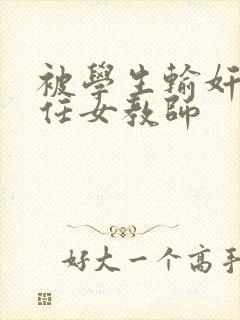 被學生輪奸
任女教師
好大一个高手